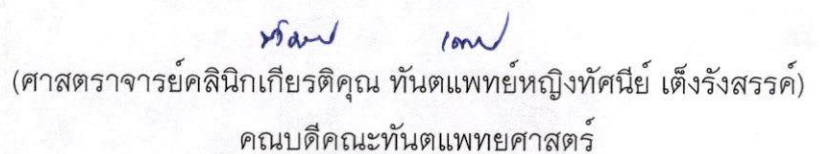 (ศาสตราจารย์คลินิกเกียรติคุณ ทันตแพทย์หญิงทัศนีย์ เต็งรังสรรค์)
คณบดีคณะทันตแพทยศาสตร์